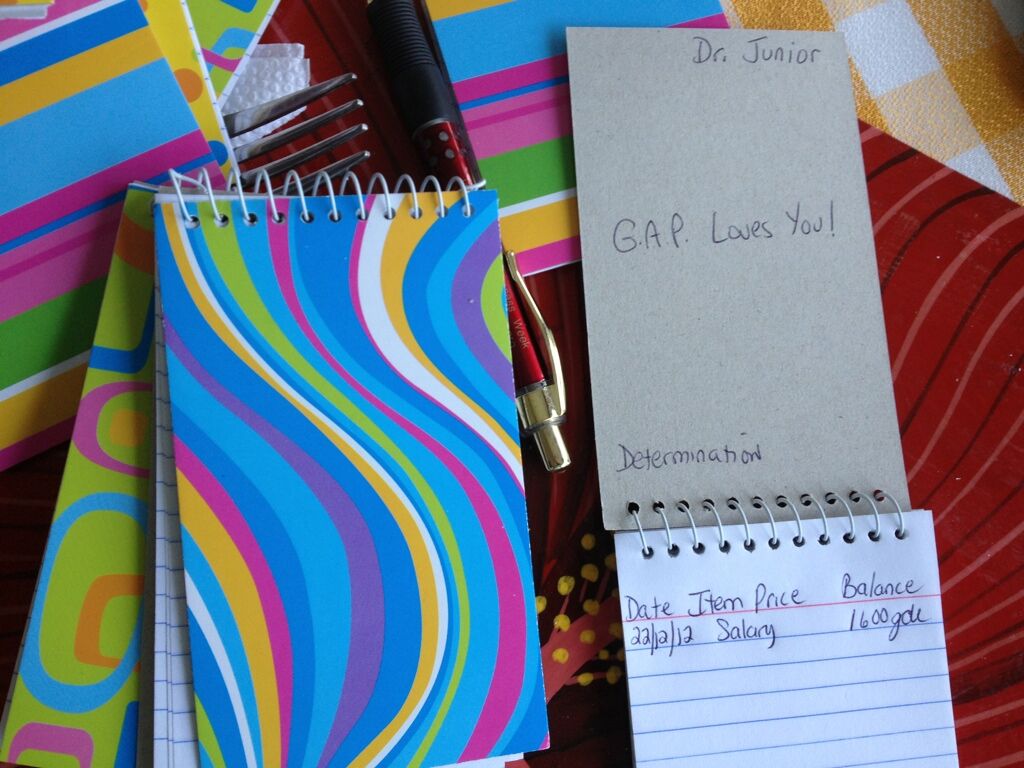 Dr. Junior
G.A.P. Loves You!
Determination
Date Item Price Balance
22/12/12 Salary 1600gde
Week